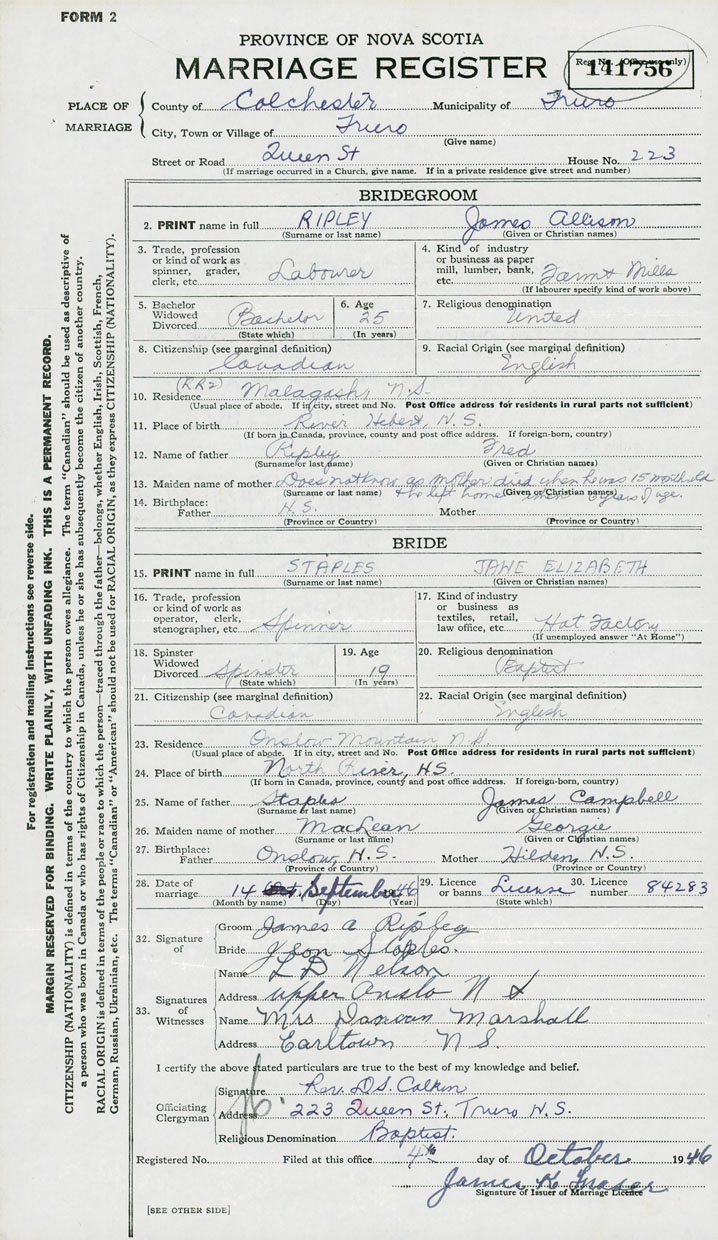 FORM 2
PROVINCE OF NOVA SCOTIA
MARRIAGE REGISTER
Reg. No. (Office use only)
141756
PLACE OF MARRIAGE
County of Colchester Municipality of Truro
City, Town or Village of Truro
(Give name)
Street or Road Queen St House No. 223
(If marriage occurred in a Church, give name. If in a private residence give street and number)
BRIDEGROOM
2. PRINT name in full RIPLEY James Allison
(Surname or last name) (Given or Christian names)
3. Trade, profession or kind of work as spinner, grader, clerk, etc. Labourer
4. Kind of industry or business as paper mill, lumber, bank, etc. Farm & Mills
(If labourer specify kind of work above)
5. Bachelor Widowed Divorced Bachelor
(State which)
6. Age 25
(In years)
7. Religious denomination
United
8. Citizenship (see marginal definition)
Canadian
9. Racial Origin (see marginal definition)
English
10. Residence (RR2) Malagash, N.S.
(Usual place of abode. If in city, street and No. Post Office address for residents in rural parts not sufficient)
11. Place of birth River Hebert, N.S.
(If born in Canada, province, county and post office address. If foreign-born, country)
12. Name of father Ripley Fred
(Surname or last name) (Given or Christian names)
13. Maiden name of mother Does not know as mother died when he was 15 months old
(Surname or last name) (Given or Christian names)
& he left home when 6 years of age.
14. Birthplace:
Father N.S. Mother
(Province or Country) (Province or Country)
BRIDE
15. PRINT name in full STAPLES JANE ELIZABETH
(Surname or last name) (Given or Christian names)
16. Trade, profession or kind of work as operator, clerk, stenographer, etc Spinner
17. Kind of industry or business as textiles, retail, law office, etc Hat Factory
(If unemployed answer "At Home")
18. Spinster Widowed Divorced Spinster
(State which)
19. Age 19
(In years)
20. Religious denomination
Baptist
21. Citizenship (see marginal definition)
Canadian
22. Racial Origin (see marginal definition)
English
23. Residence Onslow Mountain N.S.
(Usual place of abode. If in city, street and No. Post Office address for residents in rural parts not sufficient)
24. Place of birth North River, N.S.
(If born in Canada, province, county and post office address. If foreign-born, country)
25. Name of father Staples James Campbell
(Surname or last name) (Given or Christian names)
26. Maiden name of mother MacLean Georgie
(Surname or last name) (Given or Christian names)
27. Birthplace:
Father Onslow, N.S. Mother Hilden, N.S.
(Province or Country) (Province or Country)
28. Date of marriage 14 Oct. September 46
(Month by name) (Day) (Year)
29. Licence or banns License
(State which)
30. Licence number 84283
32. Signature of
Groom James A Ripley
Bride Staples.
33. Signatures of Witnesses
Name L D Nelson
Address upper Onslo N S
Name Mrs Marshall
Address Earltown N S.
I certify the above stated particulars are true to the best of my knowledge and belief.
Officiating Clergyman
Signature Rev. D.S. Colkin
Address 223 Queen St. Truro N.S.
Religious Denomination Baptist.
Registered No. Filed at this office 4th day of October 1946
James K Fraser
Signature of Issuer of Marriage Licence
[SEE OTHER SIDE]
For registration and mailing instructions see reverse side.
MARGIN RESERVED FOR BINDING. WRITE PLAINLY, WITH UNFADING INK. THIS IS A PERMANENT RECORD.
CITIZENSHIP (NATIONALITY) is defined in terms of the country to which the person owes allegiance. The term "Canadian" should be used as descriptive of
a person who was born in Canada or who has rights of Citizenship in Canada, unless he or she has subsequently become the citizen of another country.
RACIAL ORIGIN is defined in terms of the people or race to which the person—traced through the father—belongs, whether English, Irish, Scottish, French,
German, Russian, Ukrainian, etc. The terms "Canadian" or "American" should not be used for RACIAL ORIGIN, as they express CITIZENSHIP (NATIONALITY).